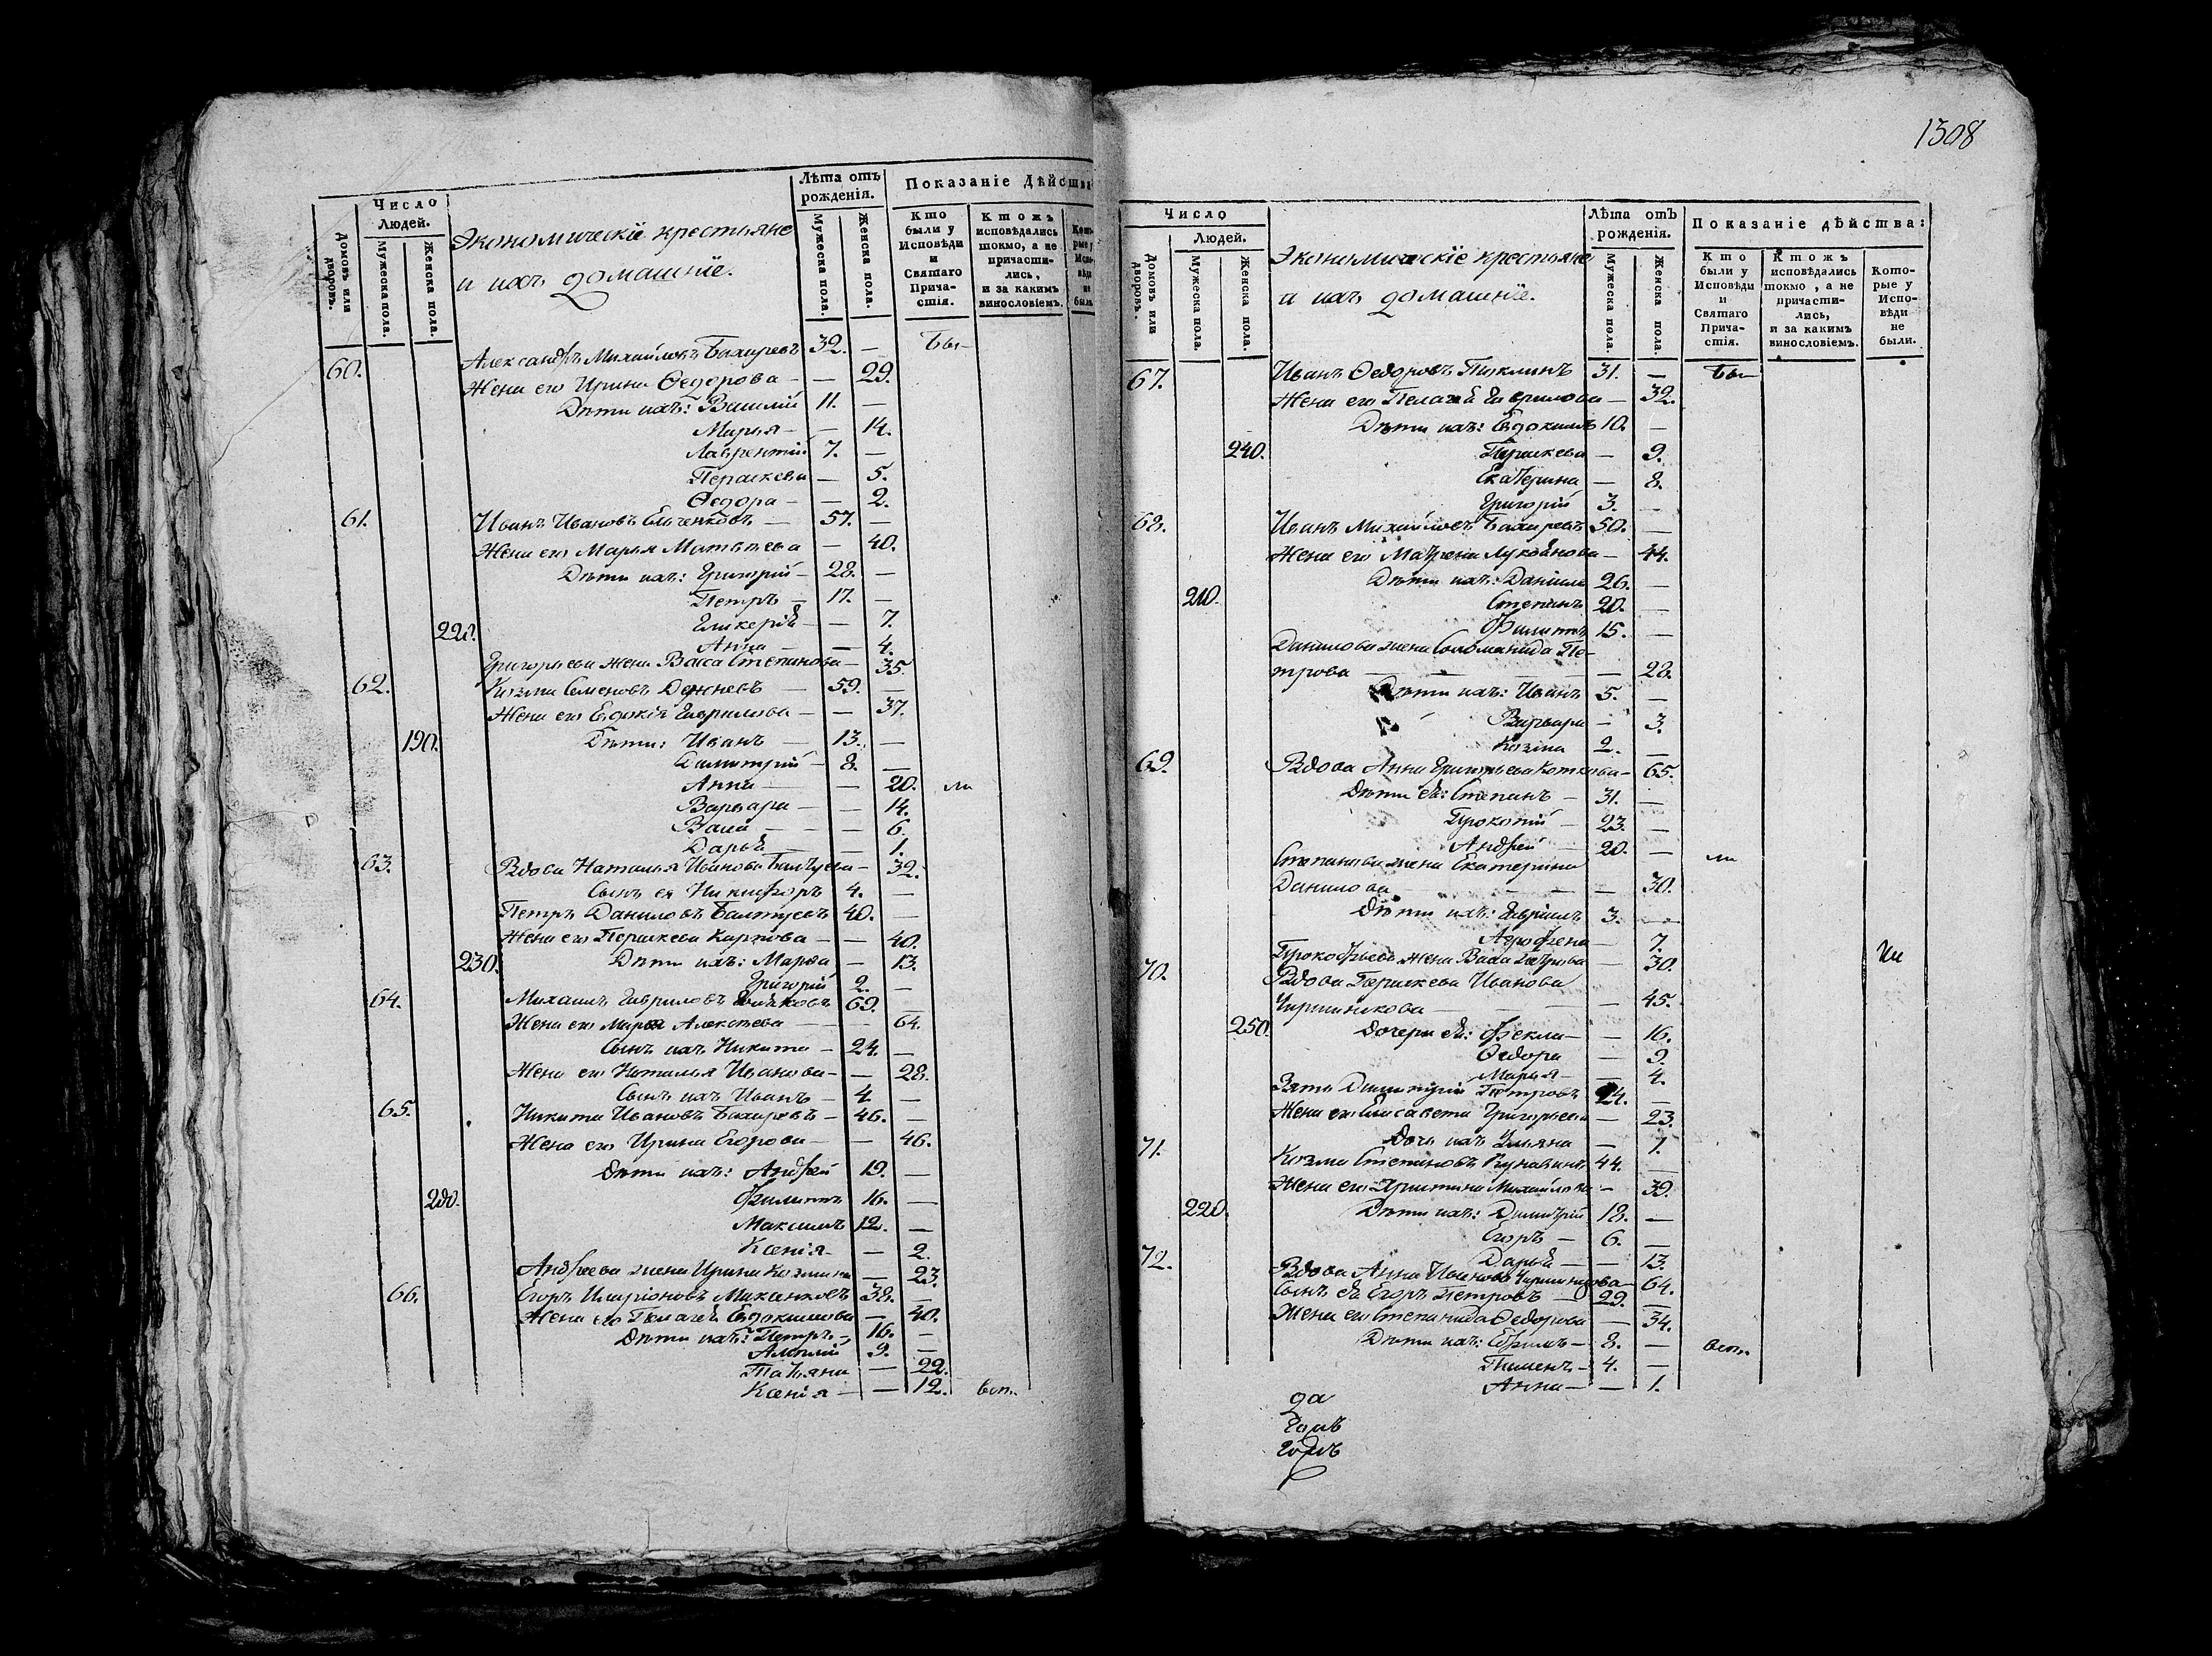 Число
Людей.
Домовъ или дворовъ.
Мужеска пола.
Женска пола.
Экономическіе крестьяне
и ихъ домашніе.
Лѣта отъ
рожденія.
Мужеска пола.
Женска пола.
Показаніе дѣйства
Кто
были у
Исповѣди
и
Святаго
Прича-
стія.
Ктожъ
исповѣдались
токмо, а не
причасти-
лись,
и за какимъ
винословіемъ.
60. Александръ Михайловъ Бахиревъ 32. — Бы
Жена его Ирина Ѳедорова — — 29.
Дѣти ихъ: Василій 11. —
Марья — — 14.
Лаврентій 7. —
Параскева — 5.
Ѳедора — — 2.
61. Иванъ Ивановъ Емченковъ — 57. —
Жена его Марья Матвѣева — 40.
Дѣти ихъ: Григорій — 28. —
Петръ — 17. —
220. Гликерія — — 7.
Анна — — 4.
Григорьева жена Васа Степанова — 35.
62. Козма Семеновъ Дежневъ — 59. —
Жена его Евдокія Гаврилова — — 37.
190. Дѣти: Иванъ — 13. —
Димитрій — 8. —
Анна — — 20. ли
Варвара — — 14.
Васса — — — 6.
Дарья — — 1.
63. Вдова Наталья Иванова — 32.
Сынъ ея Никифоръ 4. —
Петръ Даниловъ Балтуевъ 40. —
Жена его Параскева Карпова — — 40.
230. Дѣти ихъ: Марѳа — 13.
Григорій 2. —
64. Михаилъ Гавриловъ 69. —
Жена его Марья Алексѣева — — 64.
Сынъ ихъ Никита — 24. —
Жена его Наталья Иванова — — 28.
Сынъ ихъ Иванъ — 4. —
65. Никита Ивановъ Бахиревъ — 46. —
Жена его Ирина Егорова — — 46.
Дѣти ихъ: Андрей 19. —
200. Филиппъ 16. —
Максимъ 12. —
Ксенія — — 2.
Андреева жена Ирина Козмина — 23.
66. Егоръ Иларіоновъ Миханковъ 38. —
Жена его Пелагея Евдокимова — 40.
Дѣти ихъ: Петръ — 16. —
9. —
Татьяна — 22.
Ксенія — — 12. вст.
1308
Число
Людей.
Домовъ или дворовъ.
Мужеска пола.
Женска пола.
Экономическіе крестьяне
и ихъ домашніе.
Лѣта отъ
рожденія.
Мужеска пола.
Женска пола.
Показаніе дѣйства:
Кто
были у
Исповѣди
и
Святаго
Прича-
стія.
Ктожъ
исповѣдались
токмо, а не
причасти-
лись,
и за какимъ
винословіемъ.
Кото-
рые у
Испо-
вѣди
не
были.
67. Иванъ Ѳедоровъ 31. — Бы
Жена его Пелагея Гаврилова — 32.
Дѣти ихъ: Евдокимъ 10. —
240. Параскева — 9.
Екатерина — 8.
Григорій 3. —
68. Иванъ Михайловъ Бахиревъ 50. —
Жена его Матрена Лукоянова — 44.
Дѣти ихъ: Даніилъ 26. —
210. Степанъ 20. —
Филиппъ 15. —
Данилова жена Соломанида Пе-
трова — — — — 28.
Дѣти ихъ: Иванъ 5. —
Варвара — 3.
Козма 2. —
69. Вдова Анна Григорьева — 65.
Дѣти ея: Степанъ — 31. —
Прокопій — 23. —
Андрей — 20. — ли
Степанова жена Екатерина
Данилова — — — — 30.
Дѣти ихъ: Гавріилъ 3. —
Агрофена — 7.
Прокофьева жена Васа Петрова — 30. Ни
70. Вдова Параскева Иванова
Чиршникова — — — 45.
250. Дочери ея: Фекла — — 16.
Ѳедора — 9.
Марья — — 4.
Зять Димитрій Петровъ 24. —
Жена его Елисавета Григорьева — 23.
Дочь ихъ Ульяна — 1.
71. Козма Степановъ 44. —
Жена его Христина Михайлова — 39.
220. Дѣти ихъ: Димитрій 18. —
Егоръ — 6. —
Дарья — — 13.
72. Вдова Анна Иванова — 64.
Сынъ ея Егоръ Петровъ — 29. —
Жена его Степанида Ѳедорова — 34.
Дѣти ихъ: Ефимъ — 8. — вст.
Пименъ — 4. —
Анна — — 1.
да